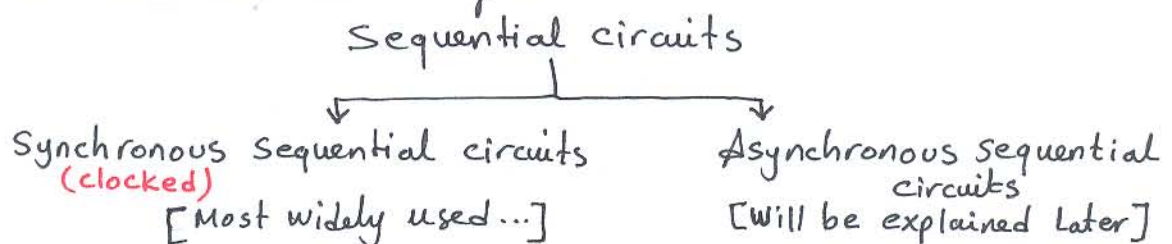 Sequential circuits
Synchronous sequential circuits
(clocked)
[Most widely used...]
Asynchronous sequential
circuits
[Will be explained Later]